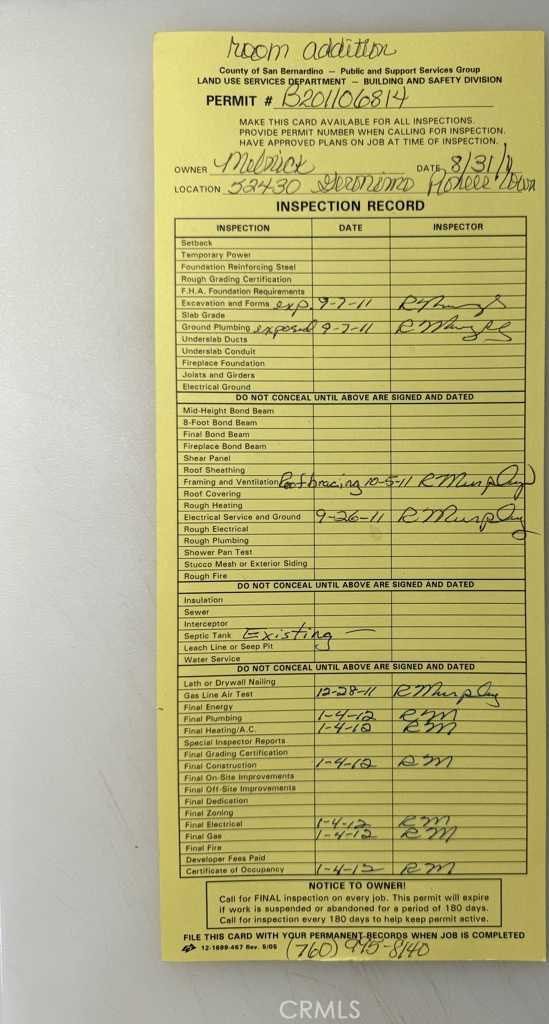 room addition
County of San Bernardino — Public and Support Services Group
LAND USE SERVICES DEPARTMENT — BUILDING AND SAFETY DIVISION
PERMIT # B201106814
MAKE THIS CARD AVAILABLE FOR ALL INSPECTIONS.
PROVIDE PERMIT NUMBER WHEN CALLING FOR INSPECTION.
HAVE APPROVED PLANS ON JOB AT TIME OF INSPECTION.
OWNER Melnick DATE 8/31/11
LOCATION 52430 Geronimo
INSPECTION RECORD
INSPECTION DATE INSPECTOR
Setback
Temporary Power
Foundation Reinforcing Steel
Rough Grading Certification
F.H.A. Foundation Requirements
Excavation and Forms exp. 9-7-11 R Murphy
Slab Grade
Ground Plumbing exposed 9-7-11 R Murphy
Underslab Ducts
Underslab Conduit
Fireplace Foundation
Joists and Girders
Electrical Ground
DO NOT CONCEAL UNTIL ABOVE ARE SIGNED AND DATED
Mid-Height Bond Beam
8-Foot Bond Beam
Final Bond Beam
Fireplace Bond Beam
Shear Panel
Roof Sheathing
Framing and Ventilation Roof bracing 10-5-11 R Murphy
Roof Covering
Rough Heating
Electrical Service and Ground 9-26-11 R Murphy
Rough Electrical
Rough Plumbing
Shower Pan Test
Stucco Mesh or Exterior Siding
Rough Fire
DO NOT CONCEAL UNTIL ABOVE ARE SIGNED AND DATED
Insulation
Sewer
Interceptor
Septic Tank Existing —
Leach Line or Seep Pit
Water Service
DO NOT CONCEAL UNTIL ABOVE ARE SIGNED AND DATED
Lath or Drywall Nailing
Gas Line Air Test 12-28-11 R Murphy
Final Energy
Final Plumbing 1-4-12 RM
Final Heating/A.C. 1-4-12 RM
Special Inspector Reports
Final Grading Certification
Final Construction 1-4-12 RM
Final On-Site Improvements
Final Off-Site Improvements
Final Dedication
Final Zoning
Final Electrical 1-4-12 RM
Final Gas 1-4-12 RM
Final Fire
Developer Fees Paid
Certificate of Occupancy 1-4-12 RM
NOTICE TO OWNER!
Call for FINAL inspection on every job. This permit will expire
if work is suspended or abandoned for a period of 180 days.
Call for inspection every 180 days to help keep permit active.
FILE THIS CARD WITH YOUR PERMANENT RECORDS WHEN JOB IS COMPLETED
12-1699-467 Rev. 5/05 (760) 995-8140
CRMLS